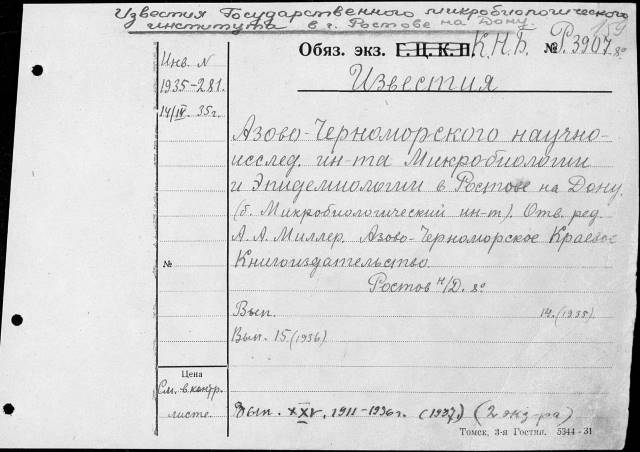 Известия Государственного микробиологического
института в г. Ростове на Дону.
159
Обяз. экз. Г.Ц.К.П. К.Н.Б. № Р.3907. 8°
Инв. N
1935-281.
14/IV 35г.
Известия
Азово-Черноморского научно-
исслед. ин-та Микробиологии
и Эпидемиологии в Ростове на Дону.
(б. Микробиологический ин-т). Отв. ред.
А. А. Миллер. Азово-Черноморское Краевое
№ Книгоиздательство.
Ростов н/Д. 8°
Вып. 14. (1935).
Вып. 15. (1936)
Цена
См. в контр.
листе.
Вып. XXV. 1911-1936г. (1937) (2 экз-ра)
Томск, 3-я Гостип. 5344-31